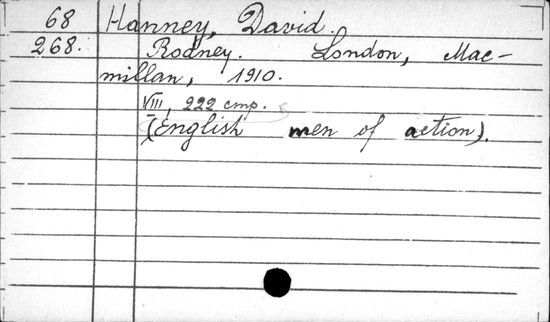 68 Hanney, David.
268. Rodney. London, Mac-
millan, 1910.
VIII, 222 cmp.
(English men of action).